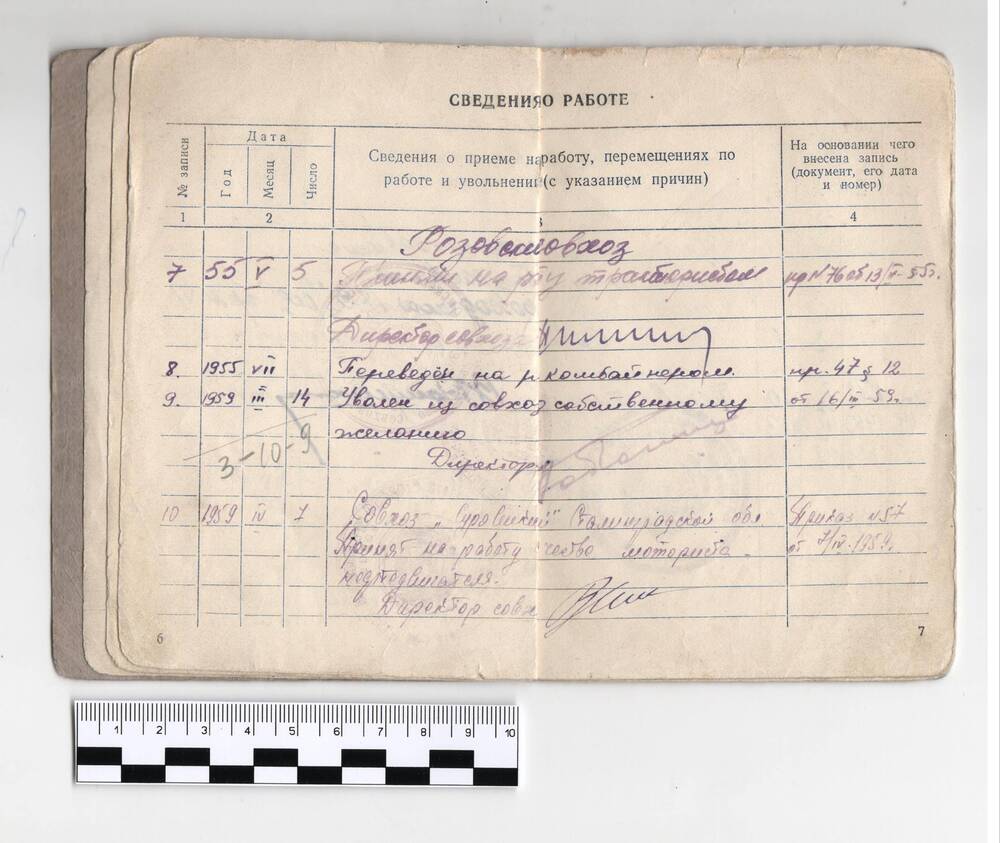 СВЕДЕНИЯ О РАБОТЕ
№ записи
Дата
Год
Месяц
Число
Сведения о приеме на работу, перемещениях по
работе и увольнении (с указанием причин)
На основании чего
внесена запись
(документ, его дата
и номер)
1 2 3 4
7 55 V 5 на р/ту трактористом пр N 76 от 13/V-55г.
Директор совхоза
8. 1955 VII Переведён на р. комбайнером. пр. 47 § 12
9. 1959 III 14 Уволен из совхоз собственному от 16/III 59г.
желанию
3-10-9
Директор
10 1959 IV 7 Совхоз „Суровский" Сталинградской обл Приказ N 57
Принят на работу моториста от 7/IV-1959г.
Директор совх
6
7
1 2 3 4 5 6 7 8 9 10